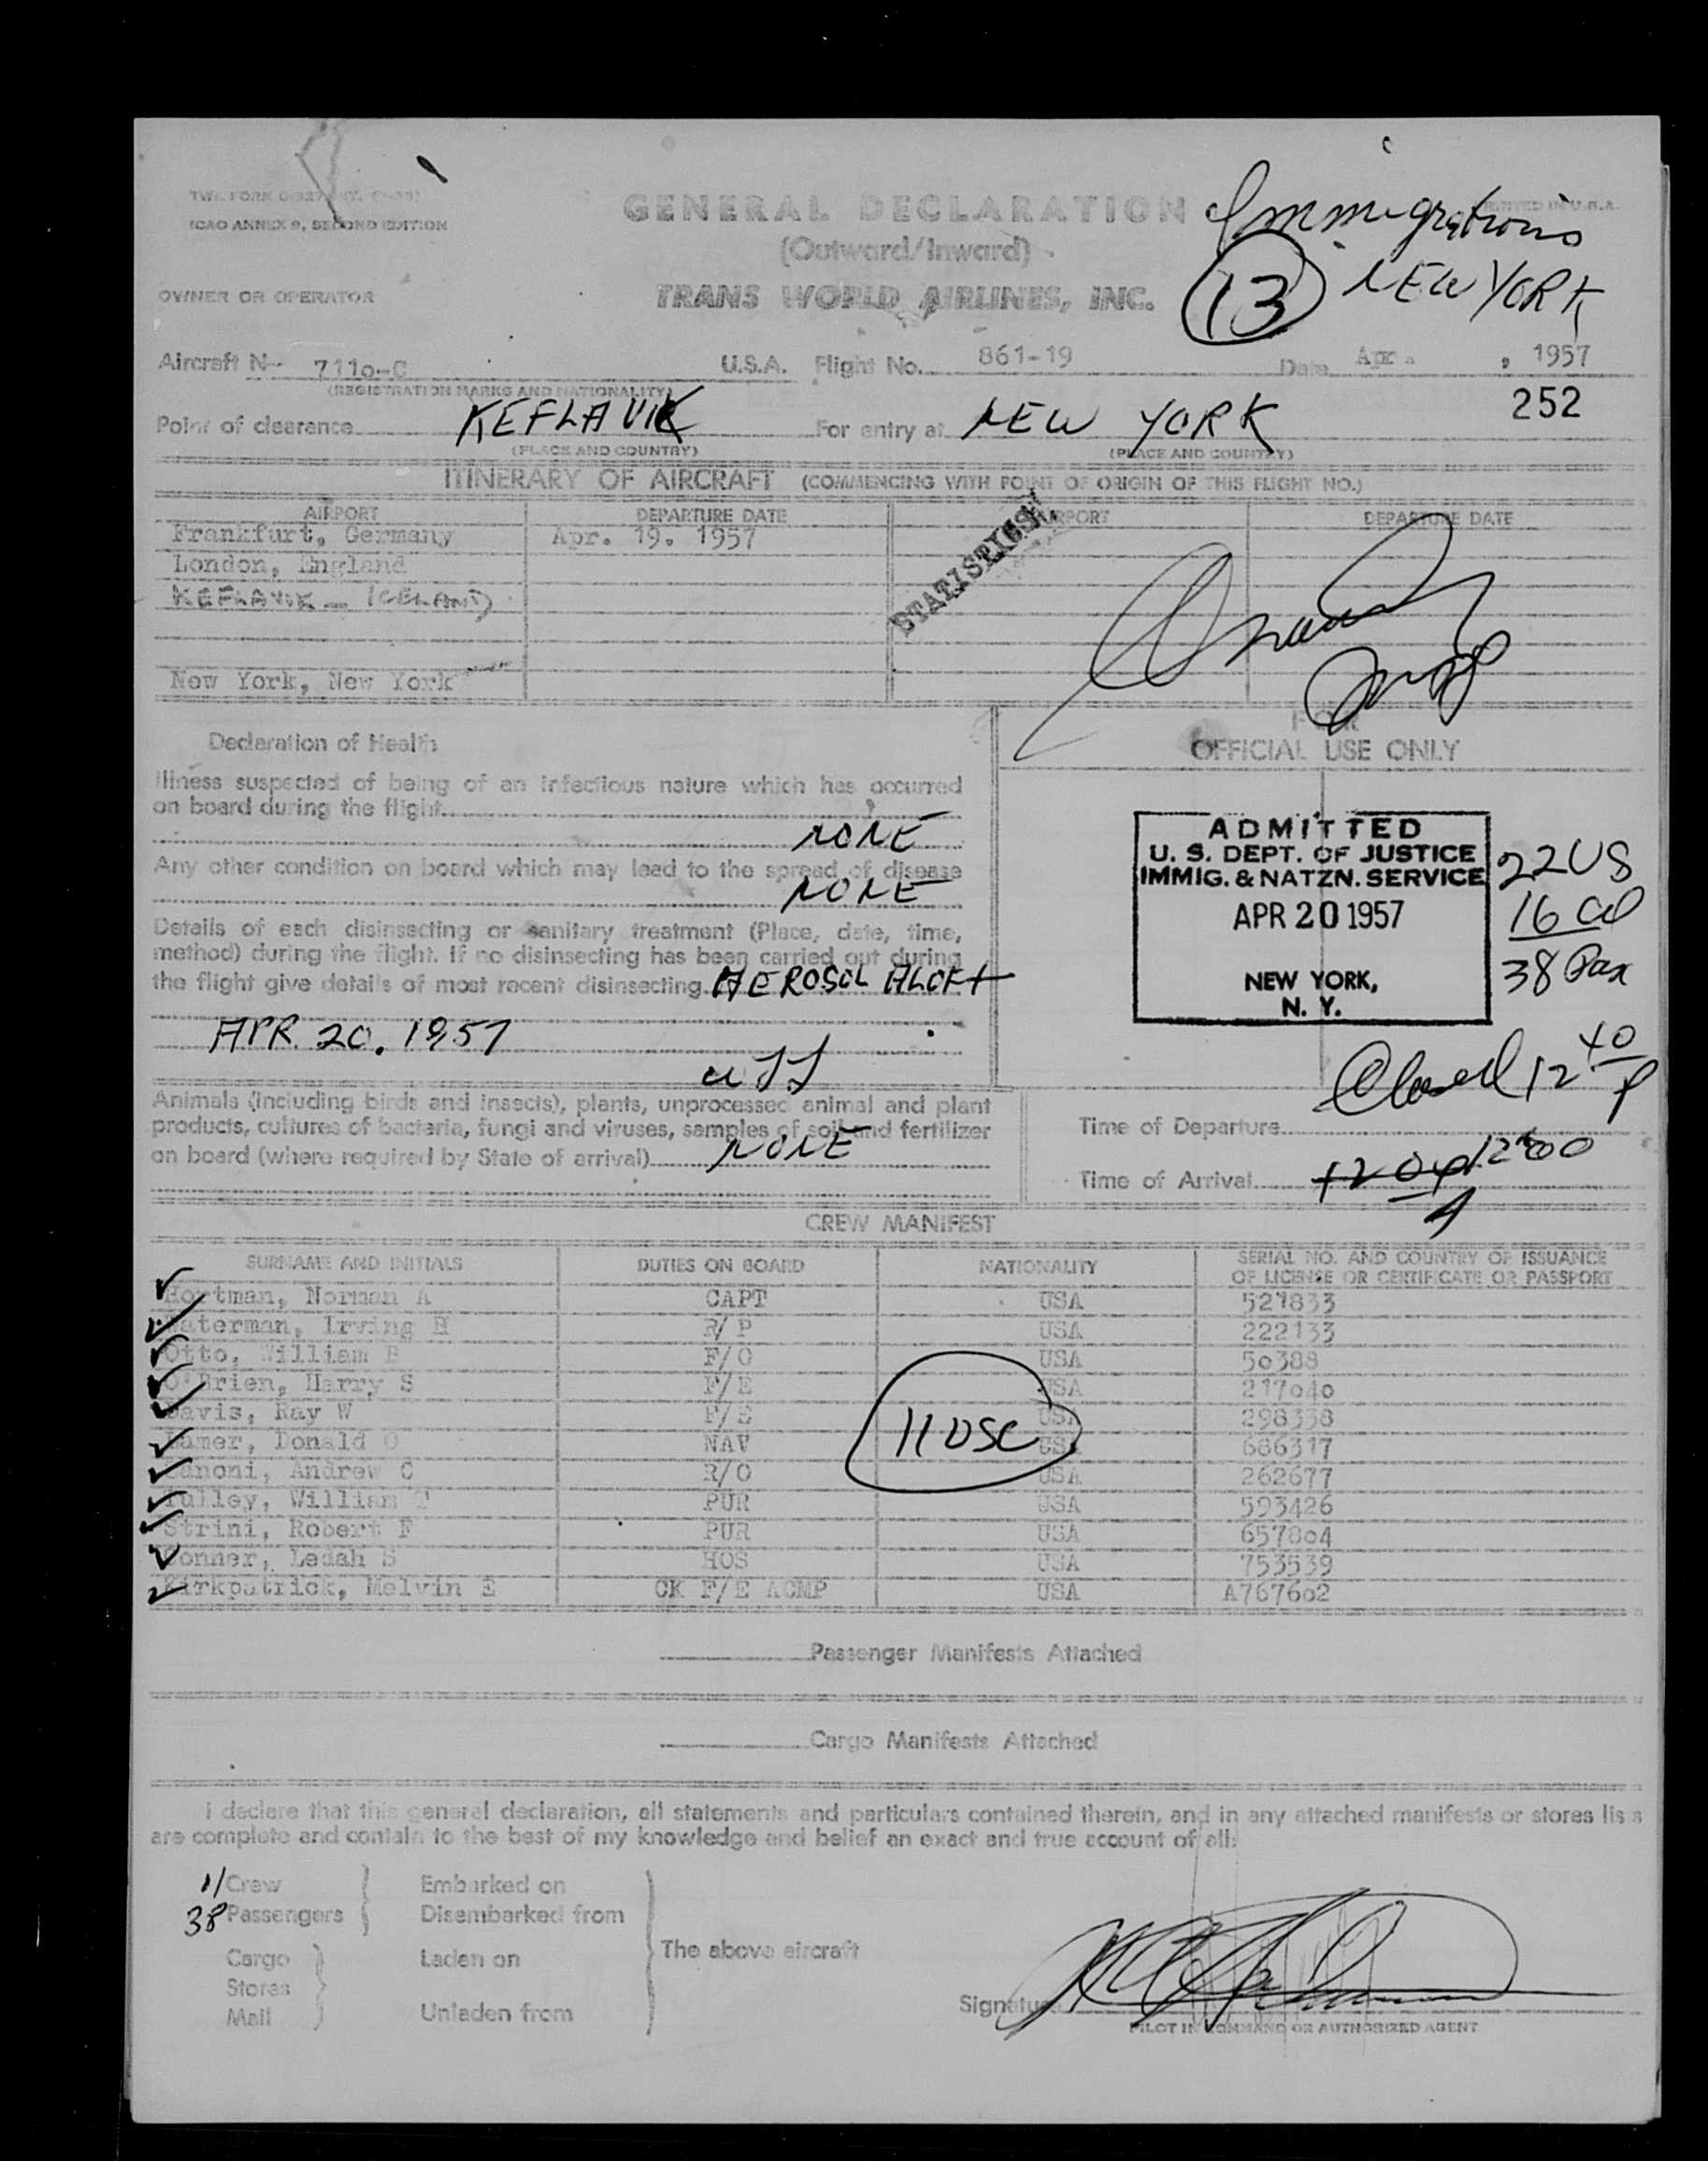 ICAO ANNEX 9, SECOND EDITION
GENERAL DECLARATION
(Outward/Inward)
Immigration
PRINTED IN U.S.A.
OWNER OR OPERATOR
TRANS WORLD AIRLINES, INC.
13
NEW YORK
Aircraft N- 7110-C U.S.A. Flight No. 861-19 Date Apr. , 1957
(REGISTRATION MARKS AND NATIONALITY)
252
Point of clearance KEFLAVIK For entry at NEW YORK
(PLACE AND COUNTRY) (PLACE AND COUNTRY)
ITINERARY OF AIRCRAFT (COMMENCING WITH POINT OF ORIGIN OF THIS FLIGHT NO.)
AIRPORT DEPARTURE DATE AIRPORT DEPARTURE DATE
Frankfurt, Germany Apr. 19. 1957
London, England
KEFLAVIK - ICELAND
New York, New York
Declaration of Health
FOR
OFFICIAL USE ONLY
Illness suspected of being of an infectious nature which has occurred
on board during the flight
NONE
Any other condition on board which may lead to the spread of disease
NONE
Details of each disinsecting or sanitary treatment (Place, date, time,
method) during the flight. If no disinsecting has been carried out during
the flight give details of most recent disinsecting AEROSOL ALOFT
APR. 20. 1957
ADMITTED
U. S. DEPT. OF JUSTICE
IMMIG. & NATZN. SERVICE
APR 20 1957
NEW YORK,
N. Y.
22 US
16 al
38 Pax
Closed 12 40 P
Animals (including birds and insects), plants, unprocessed animal and plant
products, cultures of bacteria, fungi and viruses, samples of soil and fertilizer
on board (where required by State of arrival) NONE
Time of Departure
Time of Arrival
CREW MANIFEST
SURNAME AND INITIALS DUTIES ON BOARD NATIONALITY SERIAL NO. AND COUNTRY OF ISSUANCE
OF LICENSE OR CERTIFICATE OR PASSPORT
Norman A CAPT USA 527833
Waterman, Irving H R/P USA 222133
Otto, William F/O USA 50388
O'Brien, Harry S F/E USA 217040
Davis, Ray W F/E USA 298338
Donald O NAV USA 686317
Zanoni, Andrew C R/O USA 262677
Tulley, William T PUR USA 593426
Strini, Robert F PUR USA 657804
Conner, Ledah S HOS USA 753539
Kirkpatrick, Melvin E CK F/E ACMP USA A767602
11 USC
Passenger Manifests Attached
Cargo Manifests Attached
I declare that this general declaration, all statements and particulars contained therein, and in any attached manifests or stores lists
are complete and contain to the best of my knowledge and belief an exact and true account of all:
11 Crew Embarked on
38 Passengers Disembarked from
The above aircraft
Cargo Laden on
Stores
Mail Unladen from
Signature
PILOT IN COMMAND OR AUTHORIZED AGENT
STATISTICS